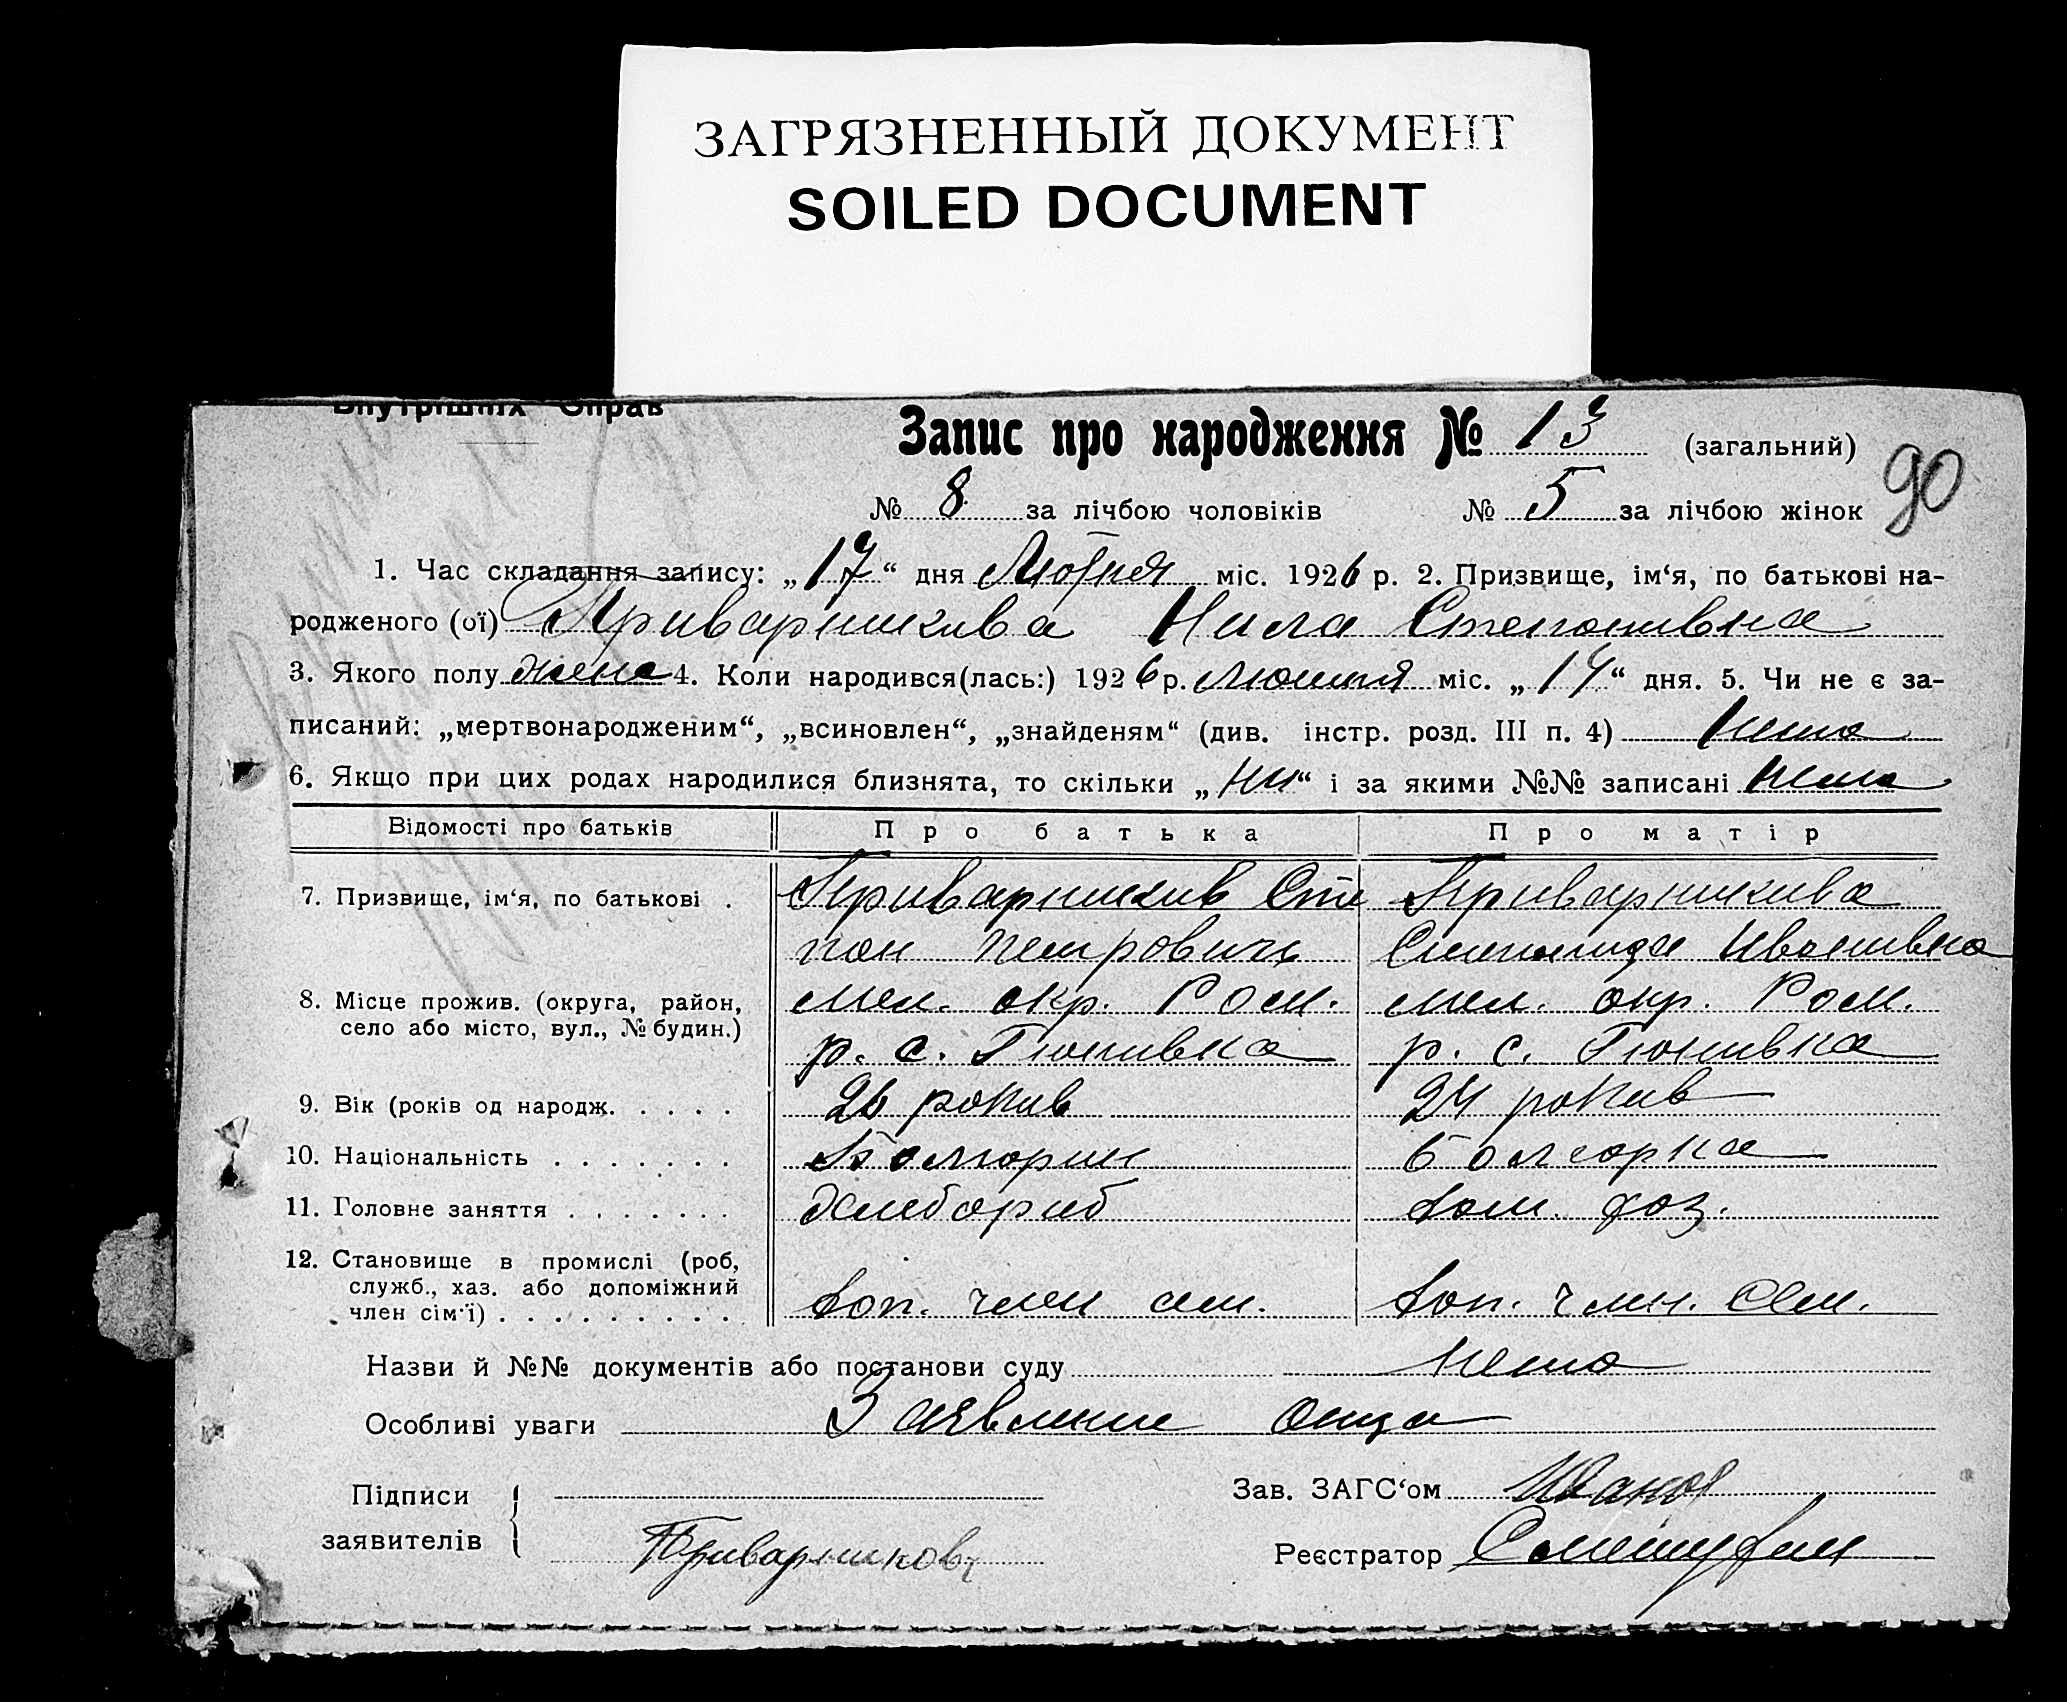 ЗАГРЯЗНЕННЫЙ ДОКУМЕНТ
SOILED DOCUMENT
Внутрішніх Справ
Запис про народження № 13 (загальний)
90
№ 8 за лічбою чоловіків № 5 за лічбою жінок
1. Час складання запису: „17“ дня Лютня міс. 1926 р. 2. Призвище, ім‘я, по батькові на-
родженого (ої) Приварникива Нила Степонивна
3. Якого полу жено 4. Коли народився(лась:) 1926 р. лютня міс. „14“ дня. 5. Чи не є за-
писаний: „мертвонародженим“, „всиновлен“, „знайденям“ (див. інстр. розд. III п. 4) Нема
6. Якщо при цих родах народилися близнята, то скільки „ни“ і за якими №№ записані Нема
Відомості про батьків Про батька Про матір
7. Призвище, ім‘я, по батькові . Приварникив Сте Приварникива
пон Петрович Ивонивна
8. Місце прожив. (округа, район, мел. окр. Ром. мел. окр. Ром.
село або місто, вул., № будин.) р. с. Гюнивка р. с. Гюнивка
9. Вік (років од народж. . . . . 26 рокив 24 рокив
10. Національність . . . . . . . Болгорин болгорка
11. Головне заняття . . . . . . . Хлибориб дом. хоз.
12. Становище в промислі (роб,
служб., хаз. або допоміжний доп. член сем. доп. член. Сем.
член сім‘ї) . . . . . . . . . .
Назви й №№ документів або постанови суду нема
Особливі уваги Заявление отца
Підписи Зав. ЗАГС‘ом Иванов
заявителів Приварников Реєстратор